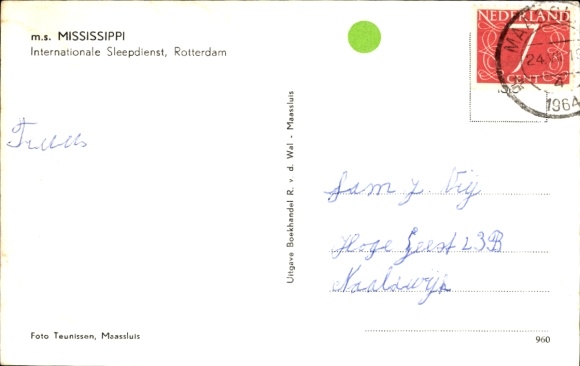 m.s. MISSISSIPPI
Internationale Sleepdienst, Rotterdam
NEDERLAND
7
CENT
24.XII
1964
Truus
Uitgave Boekhandel R. v. d. Wal - Maassluis
Fam J. Vij
Hoge Geest 23B
Naaldwijk
Foto Teunissen, Maassluis
960